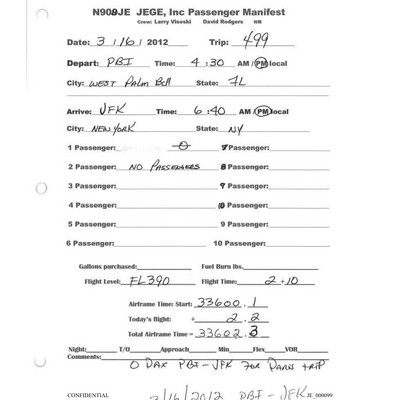 N908JE JEGE, Inc Passenger Manifest
Crew: Larry Visoski David Rodgers NM
Date: 3 / 16 / 2012 Trip: 499
Depart: PBI Time: 4:30 AM / PM local
City: WEST PALM BCH State: FL
Arrive: JFK Time: 6:40 AM / PM local
City: NEW YORK State: NY
1 Passenger: 0 7 Passenger:
2 Passenger: NO PASSENGERS 8 Passenger:
3 Passenger: 9 Passenger:
4 Passenger: 10 Passenger:
5 Passenger: 9 Passenger:
6 Passenger: 10 Passenger:
Gallons purchased: Fuel Burn lbs.
Flight Level: FL390 Flight Time: 2+10
Airframe Time: Start: 33600.1
Today's flight: + 2.2
Total Airframe Time = 33602.3
Night: T/O Approach Min Flex VOR
Comments: 0 PAX PBI-JFK FOR PARIS TRIP
CONFIDENTIAL 3/16/2012 PBI - JFK JE_000099